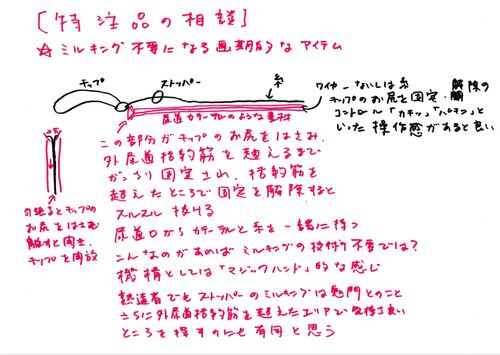 [特注品の相談]
☆ミルキング不要になる画期的なアイテム
チップ
ストッパー
糸
ワイヤーないしは糸
チップのお尻を固定・解除の
コントロール「カチッ」「パチン」と
いった操作感があると良い
尿道カテーテルのような素材
この部分がチップのお尻をはさみ、
外尿道括約筋を越えるまで
がっちり固定され、括約筋を
越えたところで固定を解除すると
スルスル抜ける
尿道口からカテーテルと糸を一緒に持つ
引張るとチップの
お尻をはさむ
離すと開き、
チップを開放
こんなのがあればミルキングの技術不要では?
機構としては「マジックハンド」的な感じ
熟達者でもストッパーのミルキングは鬼門とのこと
さらに外尿道括約筋を越えたエリアで気持ち良い
ところを探すのにも有用と思う